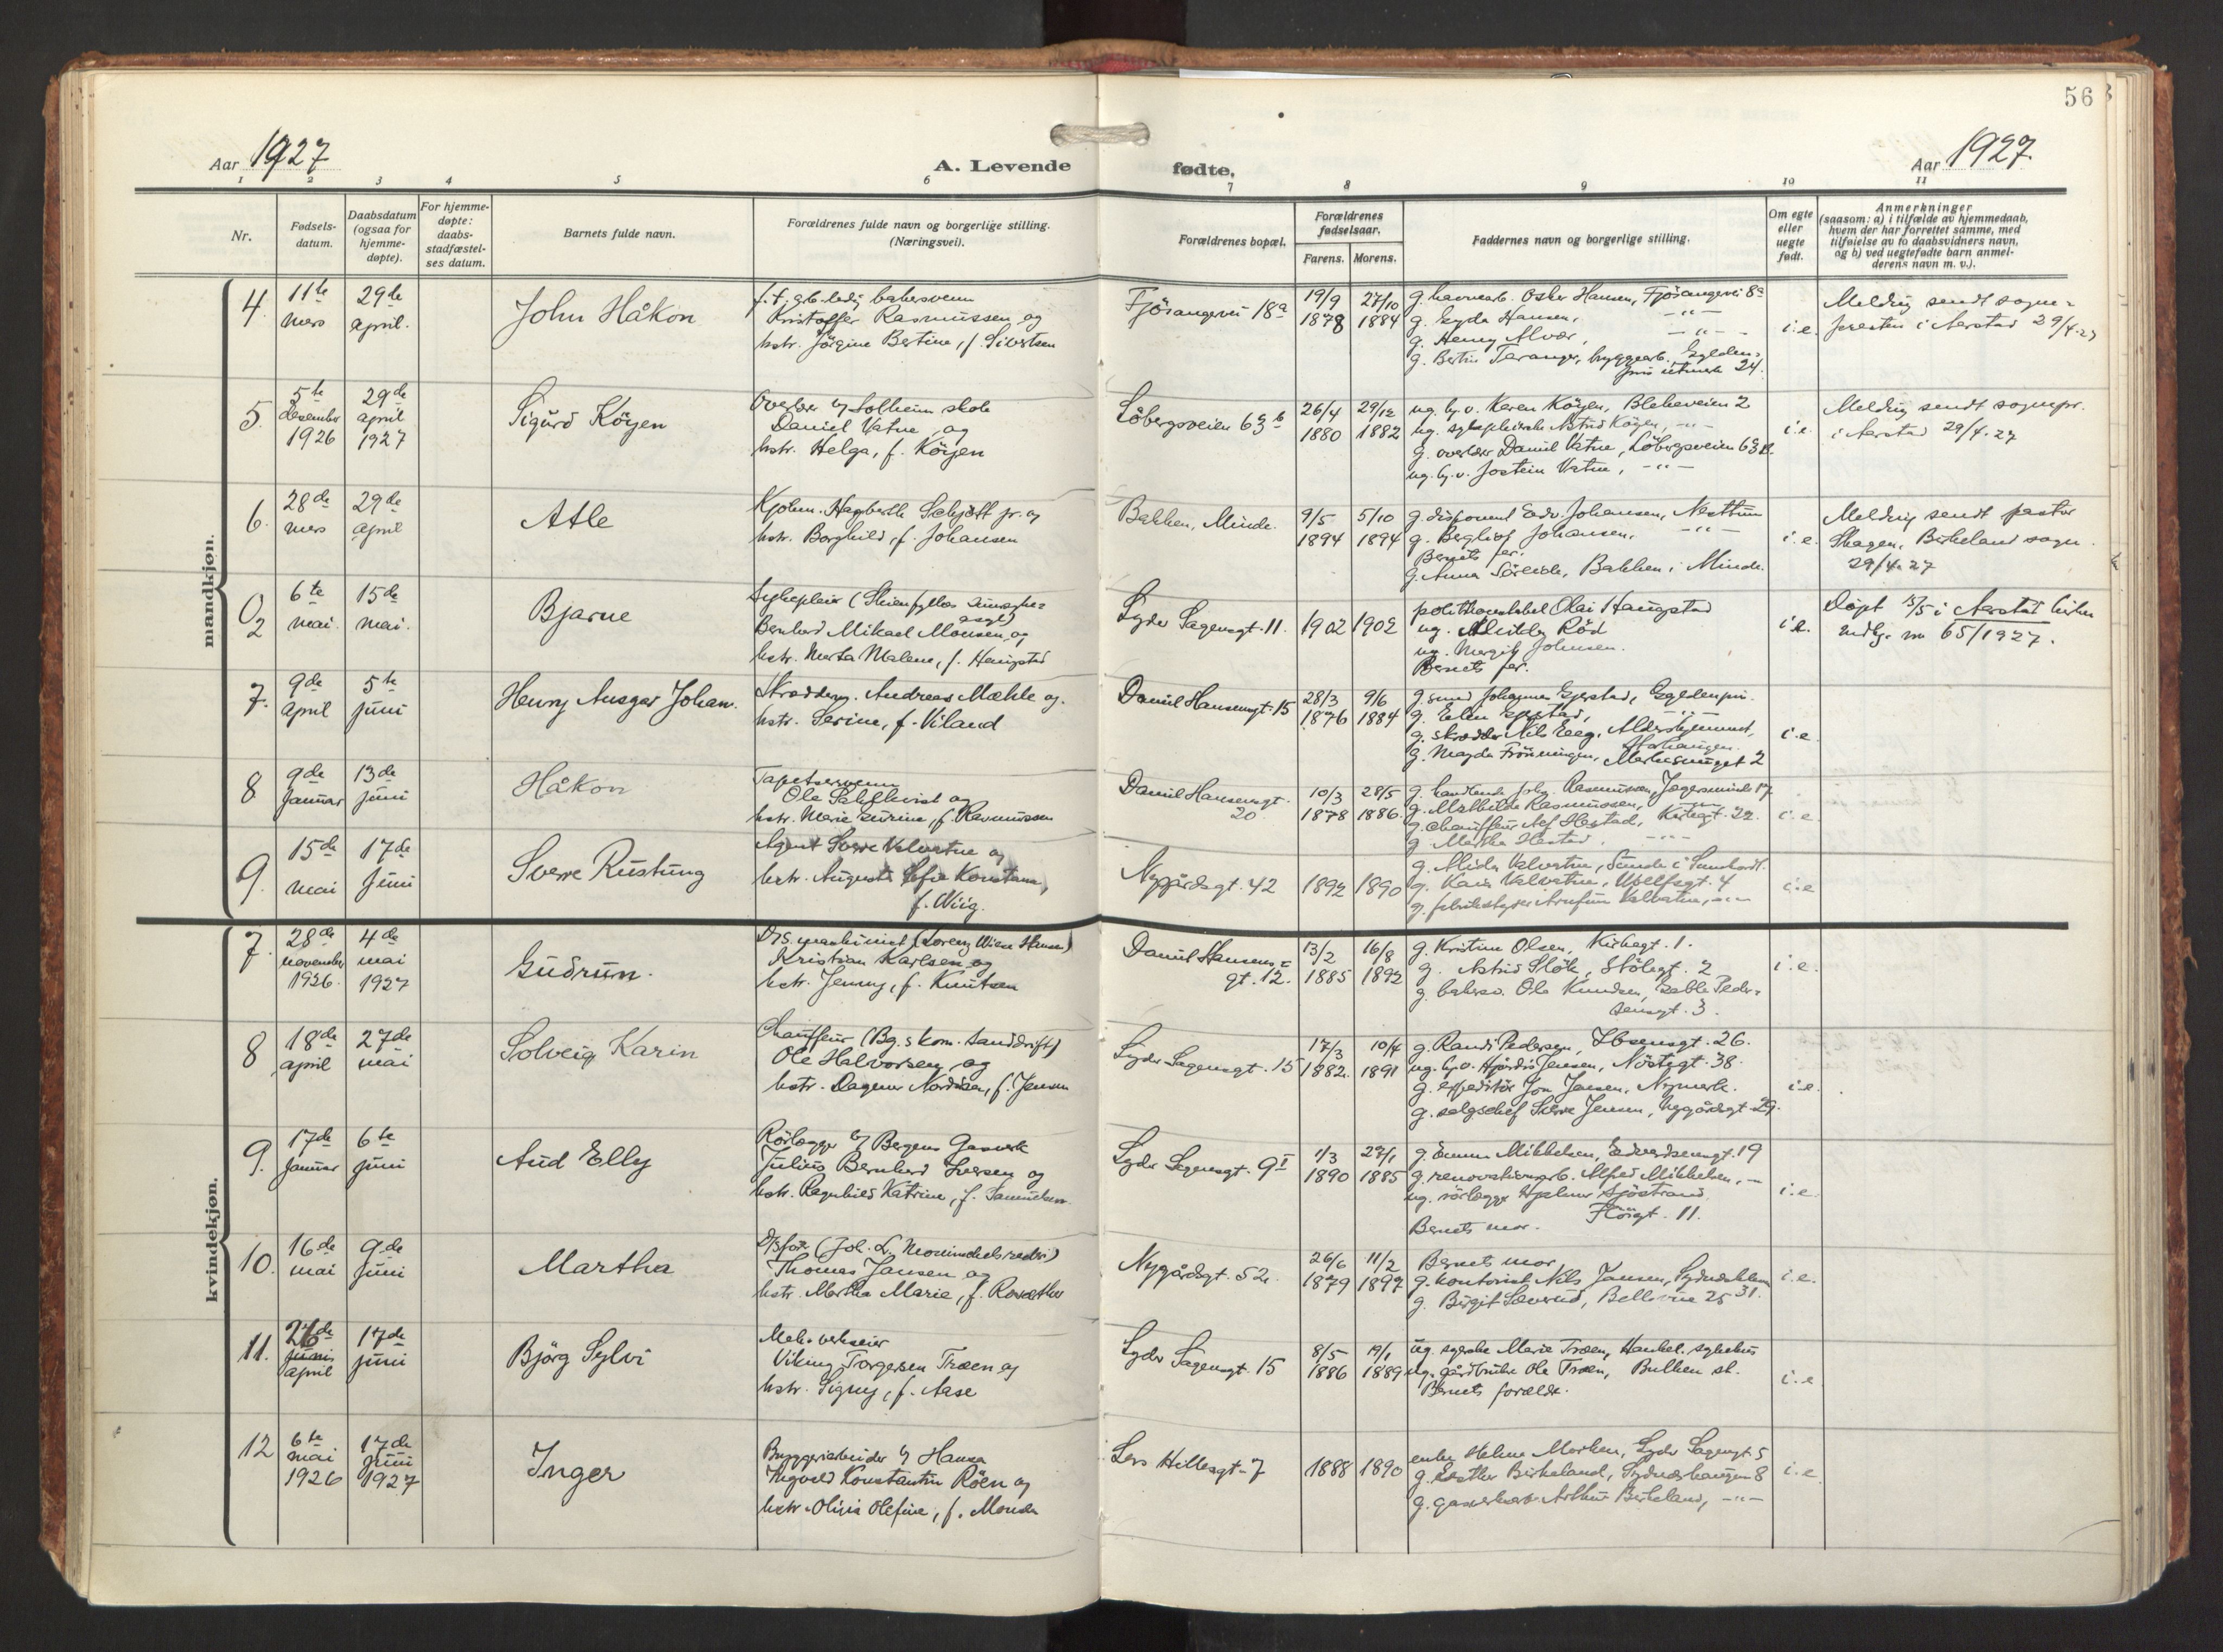 56
Aar 1927
A. Levende fødte.
Aar 1927.
1 2 3 4 5 6 7 8 9 10 11
Nr.
Fødsels-
datum.
Daabsdatum
(ogsaa for
hjemme-
døpte).
For hjemme-
døpte:
daabs-
stadfæstel-
ses datum.
Barnets fulde navn.
Forældrenes fulde navn og borgerlige stilling.
(Næringsvei).
Forældrenes bopæl.
Forældrenes
fødselsaar.
Farens. Morens.
Faddernes navn og borgerlige stilling.
Om egte
eller
uegte
født.
Anmerkninger
(saasom: a) i tilfælde av hjemmedaab,
hvem der har forrettet samme, med
tilføielse av to daabsvidners navn,
og b) ved uegtefødte barn anmel-
derens navn m. v.).
mandkjøn.
4
11te
mars
29de
april.
John Håkon
f. t. arb.ledig bakersvenn
Kristoffer Rasmussen og
hstr. Jörgine Bertine, f. Sivertsen
Fjösangervei 18a
19/9
1878
27/10
1884
g. havnearb. Oskar Hansen, Fjösangervei 8a
g. Gyda Hansen, -"-
g. Henny Alvær, -"-
g. Bertin Taranger, bryggearb.
24.
i.e.
Melding sendt sogne-
presten i Aarstad 29/4.27
5.
5te
desember
1926
29de
april
1927
Sigurd Köyen
Overlærer v/ Solheim skole
Daniel Vatne og
hstr. Helga, f. Köyen
Löbergsveien 63b
26/4
1880
29/12
1882
ug. hj.v. Karen Köyen, Blekeveien 2
ug. sykepleierske Astrid Köyen, -"-
g. overlærer Daniel Vatne, Löbergsveien 63B.
ug. hj.v. Jostein Vatne, -"-
i.e.
Melding sendt sognepr.
i Aarstad 29/4.27
6.
28de
mars
29de
april
Atle
Kjøbm. Hagbarth Schjött jr. og
hstr. Borghild, f. Johansen
Bakken, Minde.
9/5
1894
5/10
1894
g. disponent Edv. Johansen, Nesttun
g. Bergliot Johansen, -"-
Barnets far.
g. Anna Söreide, Bakken i Minde.
i.e.
Melding sendt pastor
Skagen, Birkeland sogn
29/4.27
0
2
6te
mai.
15de
mai.
Bjarne
Sykepleier
Bernhard Mikael Monsen og
hstr. Marta Malene, f. Haugstad
Lyder Sagensgt. 11.
1902
1902
politikonstabel Olai Haugstad
ug. Röd
ug. Margit Johnsen.
Barnets far.
i.e.
Döpt 15/5 i Aarstad kirke
indfg. nr 65/1927.
7.
9de
april
5te
juni
Henry Ansgar Johan.
Skrædderm. Andreas Mæhle og
hstr. Serine, f. Viland
Daniel Hansensgt. 15
28/3
1876
9/6
1884
g. smed Johannes Gjerstad,
g. Elen Gjerstad, -"-
g. skrædder Nils Eeg,
g. Magda Frönningen, 2
i.e.
8
9de
januar
13de
juni
Håkon
Tapetsersvenn
Ole Sahlkvist og
hstr. Marie Gurine, f. Rasmussen
Daniel Hansensgt.
20
10/3
1878
28/5
1886.
g. handlende Rasmussen, 17
g. Mathilde Rasmussen, -"-
g. chauffeur Alf Hestad, Kirkegt. 22.
g. Martha Hestad. -"-
i.e.
9.
15de
mai
17de
juni
Sverre Rustung
Agent Sverre Valvatne og
hstr. Augusta Sofie Konstanse,
f. Wiig.
Nygårdsgt. 42
1892
1890
g. Alida Valvatne, Sunde i Sunnhordl.
g. Kaia Valvatne, Welhsgt. 4
g. fabrikbestyrer Arnfinn Valvatne, -"-
i.e
kvindekjøn.
7.
28de
november
1926.
4de
mai
1927
Gudrun.
D/S. maskinist (Lorentz Wiese Hansen)
Kristian Karlsen og
hstr. Jenny, f. Knutsen
Daniel Hansens-
gt. 12.
13/2
1885
16/8
1892
g. Kristine Olsen, Kirkegt. 1.
g. Astrid Slök, Stölegt. 2
g. bakersv. Ole Knudsen, Gable Peder-
sensgt. 3.
i.e.
8
18de
april
27de
mai
Solveig Karin
Chauffeur (Bg.s kom. sanddrift)
Ole Halvorsen og
hstr. Dagmar Nordine, f. Jensen
Lyder Sagensgt. 15
17/3
1882.
10/4
1891
g. Randi Pedersen, Ibsensgt. 26.
ug. hj.v. Hjördis Jensen, Nöstegt. 38.
g. expeditör Jon Jansen, Nymark.
g. salgschef Sverre Jensen, Nygårdsgt. 29.
i.e.
9.
17de
januar
6te
juni
Aud Elly
Rörlegger v/ Bergens Gasverk
Julius Bernhard Iversen og
hstr. Ragnhild Katrine, f. Samuelsen.
Lyder Sagensgt. 9I
1/3
1890
27/1
1885
g. Emma Mikkelsen, Edvardsensgt. 19
g. renovationsarb. Alfred Mikkelsen, -"-
ug. rörlegger Hjalmar Sjöstrand,
Flöigt. 11.
Barnets mor.
i.e.
10.
16de
mai
9de
juni
Martha
D/S (Joh. L. Mowinckels rederi)
Thomas Jansen og
hstr. Martha Marie, f.
Nygårdsgt. 52.
26/6
1879
11/2
1897
Barnets mor,
g. kontorist Nils Jansen, 31.
g. Birgit Sæverud, Bellevue 25
i.e.
11.
26de
juni
april
17de
juni
Björg Sylvi
Mek. verkseier
Viking Torgersen Træen og
hstr. Signy, f. Aase
Lyder Sagensgt. 15
8/5
1886
19/1
1889
ug. syerske Marie Træen, Haukel. sykehus
ug. gårdbruker Ole Træen, Bulken st.
Barnets foreldre.
i.e
12
6te
mai
1926
17de
juni
1927
Inger
Bryggeriarbeider v/ Hansa
Ingvald Konstantin Röen og
hstr. Olivia Olefine, f. Monsen
Lars Hillesgt. 7
1888
1890
enke Helene Marken, Lyder Sagensgt. 5
g. Esther Birkeland, Sydneshaugen 8
g. Arthur Birkeland, -"-
i.e.